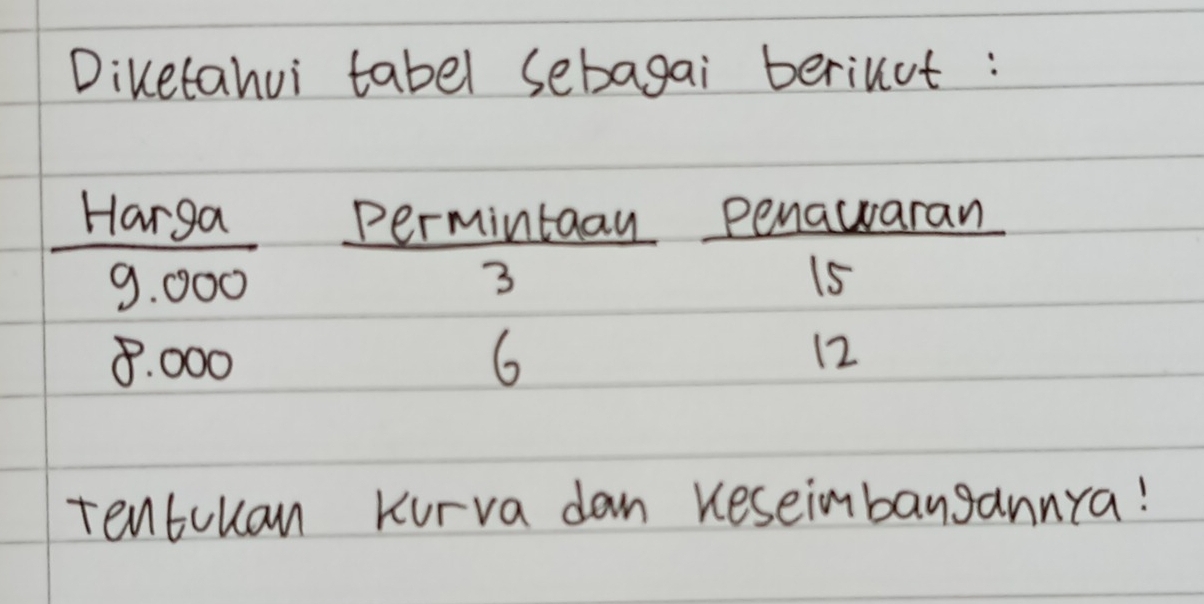 Diketahui tabel sebagai berikut :
Harga Permintaan Penawaran
9.000 3 15
8.000 6 12
Tentukan kurva dan keseimbangannya!